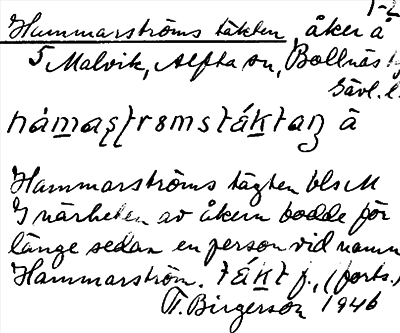 1-2
Hammarströms täkten, åker å
5 Malvik, Alfta sn, Bollnäs
Gävl. l.
hámaʂʈrɵmstáktaŋ å
Hammarströms tägten bls M
I närheten av åkern bodde för
länge sedan en person vid namn
Hammarström. tákt f., (forts.)
T. Birgerson 1946